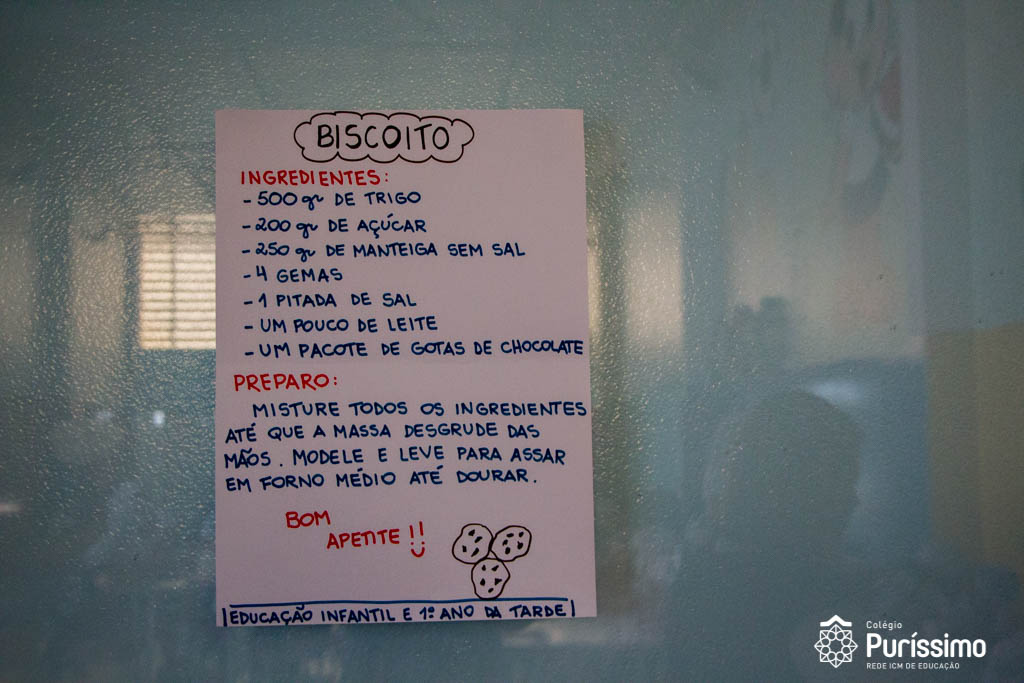 BISCOITO
INGREDIENTES:
- 500 gr DE TRIGO
- 200 gr DE AÇÚCAR
- 250 gr DE MANTEIGA SEM SAL
- 4 GEMAS
- 1 PITADA DE SAL
- UM POUCO DE LEITE
- UM PACOTE DE GOTAS DE CHOCOLATE
PREPARO:
MISTURE TODOS OS INGREDIENTES
ATÉ QUE A MASSA DESGRUDE DAS
MÃOS. MODELE E LEVE PARA ASSAR
EM FORNO MÉDIO ATÉ DOURAR.
BOM
APETITE!!
EDUCAÇÃO INFANTIL E 1º ANO DA TARDE
Colégio
Puríssimo
REDE ICM DE EDUCAÇÃO